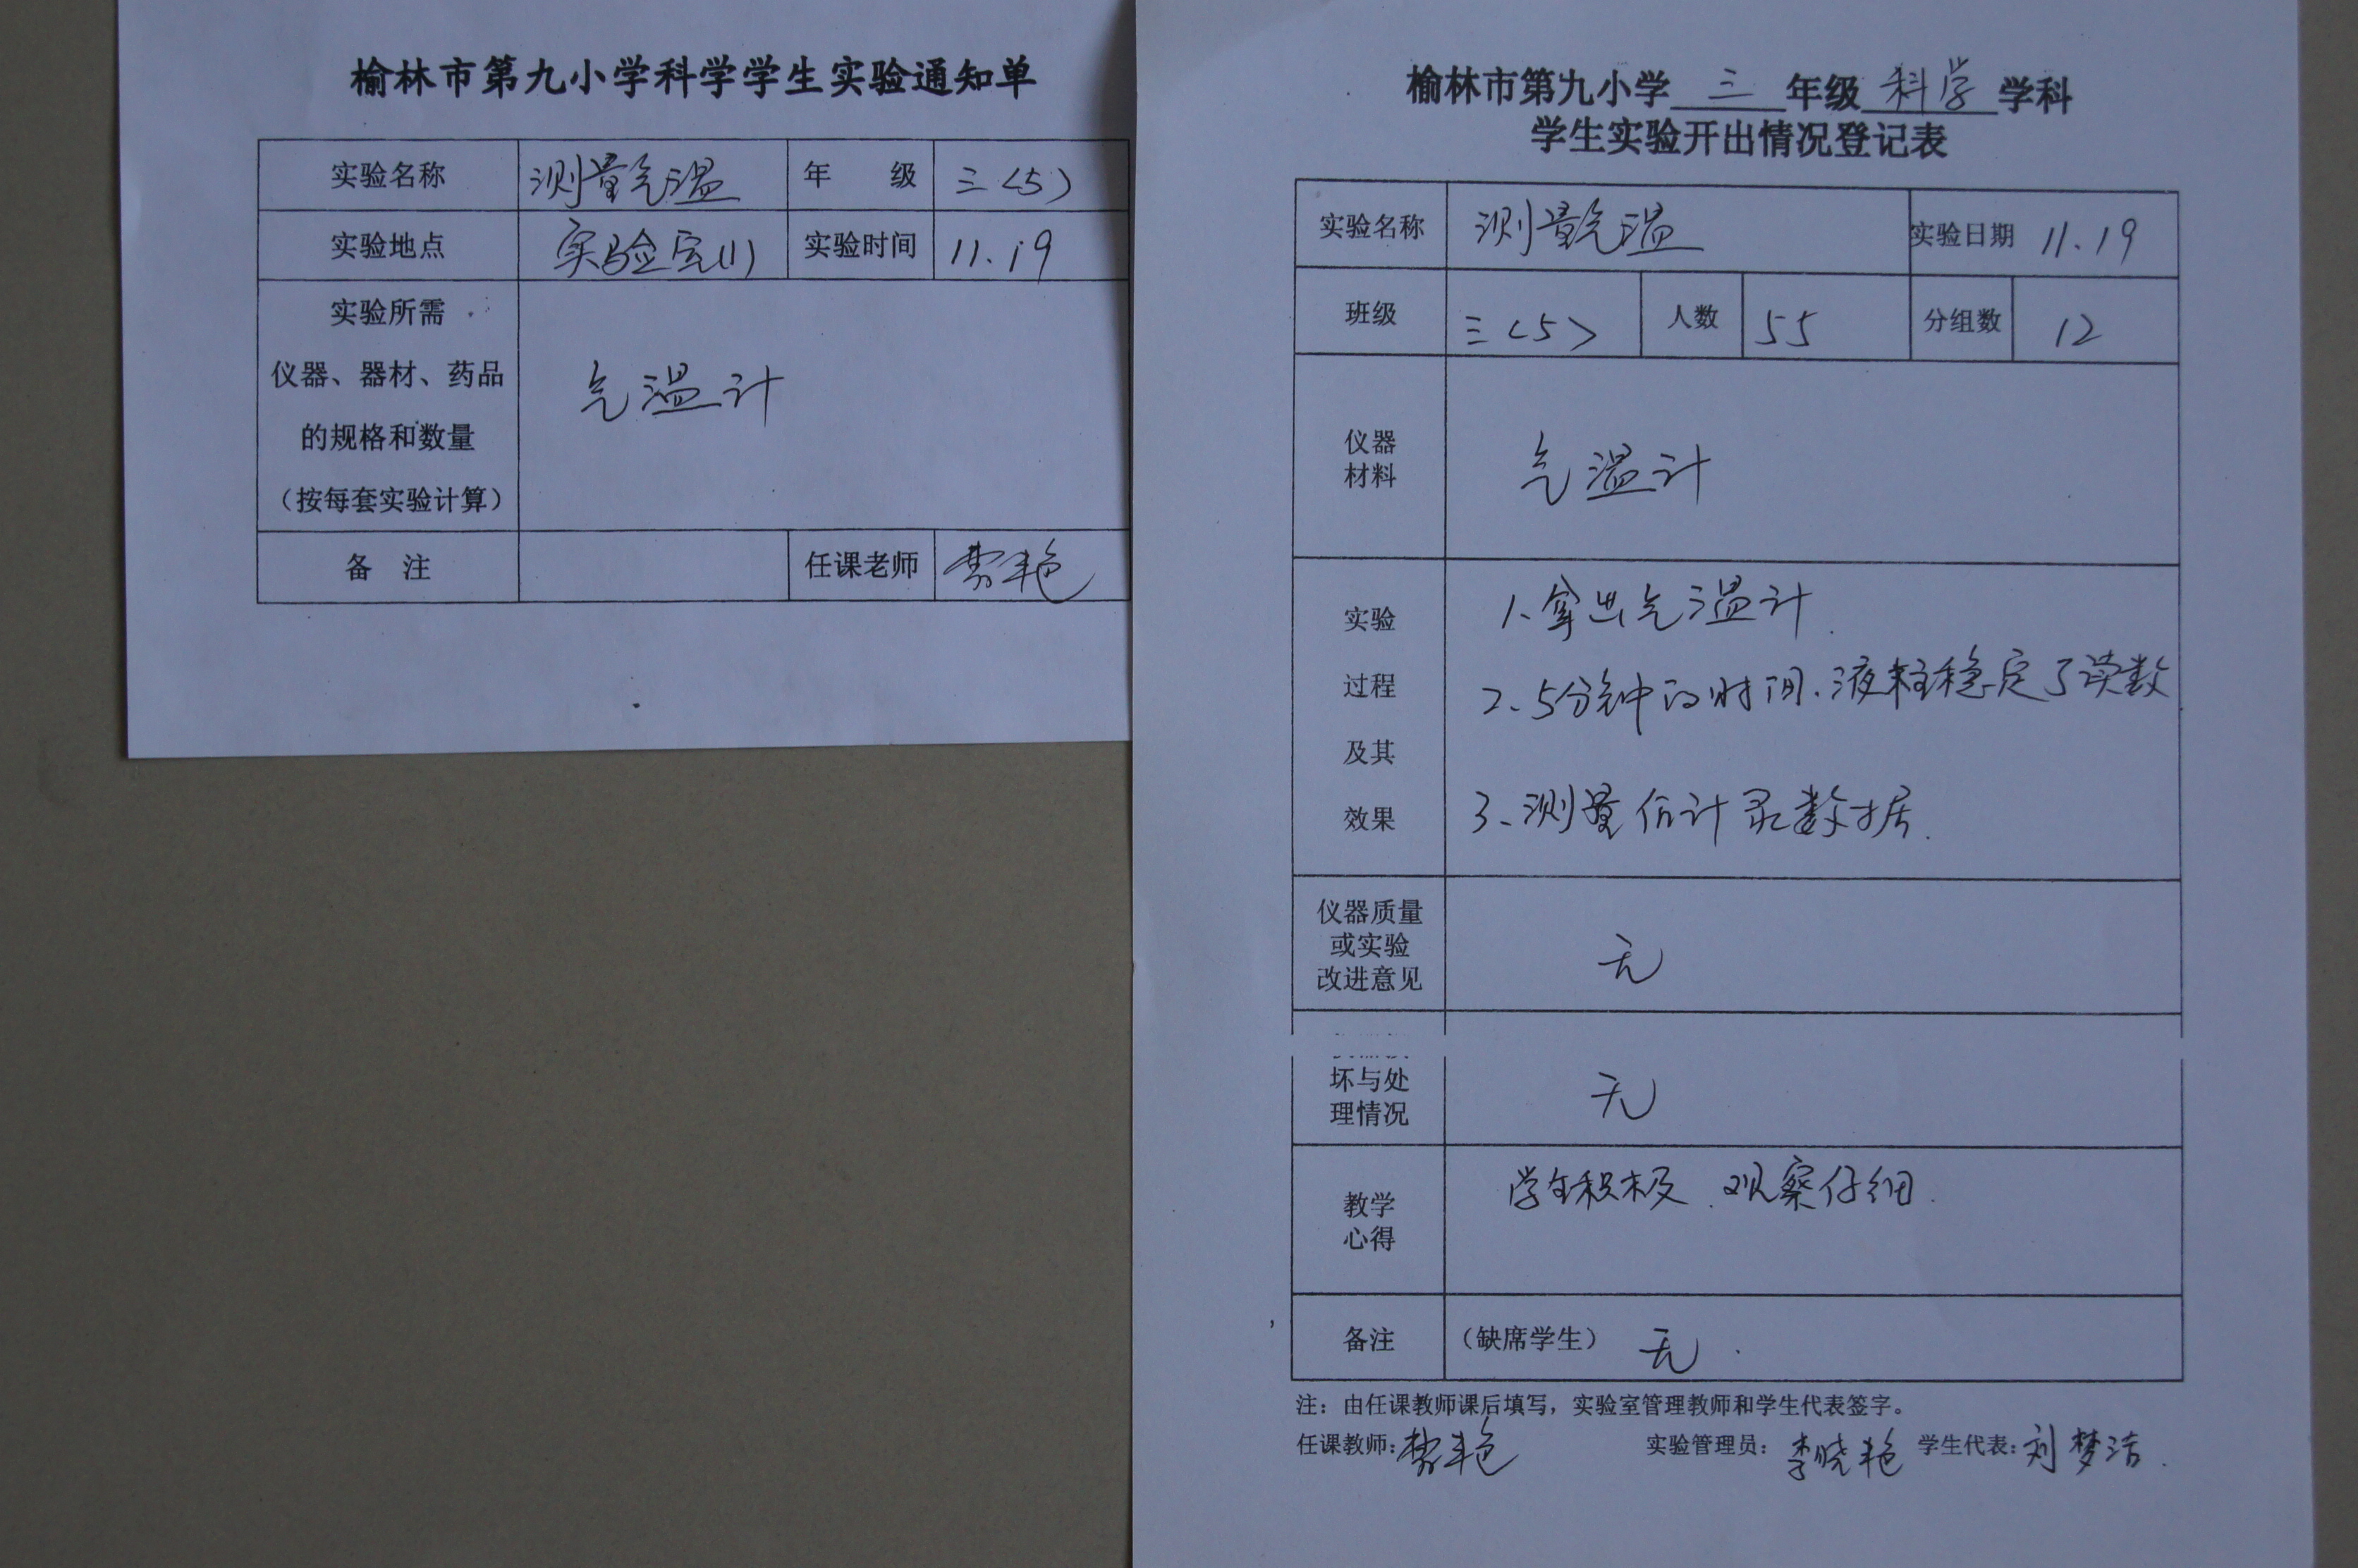 榆林市第九小学科学学生实验通知单
实验名称 测量气温 年 级 三(5)
实验地点 实验室(1) 实验时间 11.19
实验所需
仪器、器材、药品
的规格和数量
(按每套实验计算)
气温计
备 注 任课老师
榆林市第九小学 三 年级 科学 学科
学生实验开出情况登记表
实验名称 测量气温 实验日期 11.19
班级 三<5> 人数 55 分组数 12
仪器
材料
气温计
实验
过程
及其
效果
1、拿出气温计.
2、5分钟的时间、液柱稳定了读数
3、测量估计录数据.
仪器质量
或实验
改进意见
无
坏与处
理情况
无
教学
心得
学生积极.观察仔细.
备注 (缺席学生) 无.
注:由任课教师课后填写,实验室管理教师和学生代表签字。
任课教师: 实验管理员: 李晓艳 学生代表: 刘梦洁.